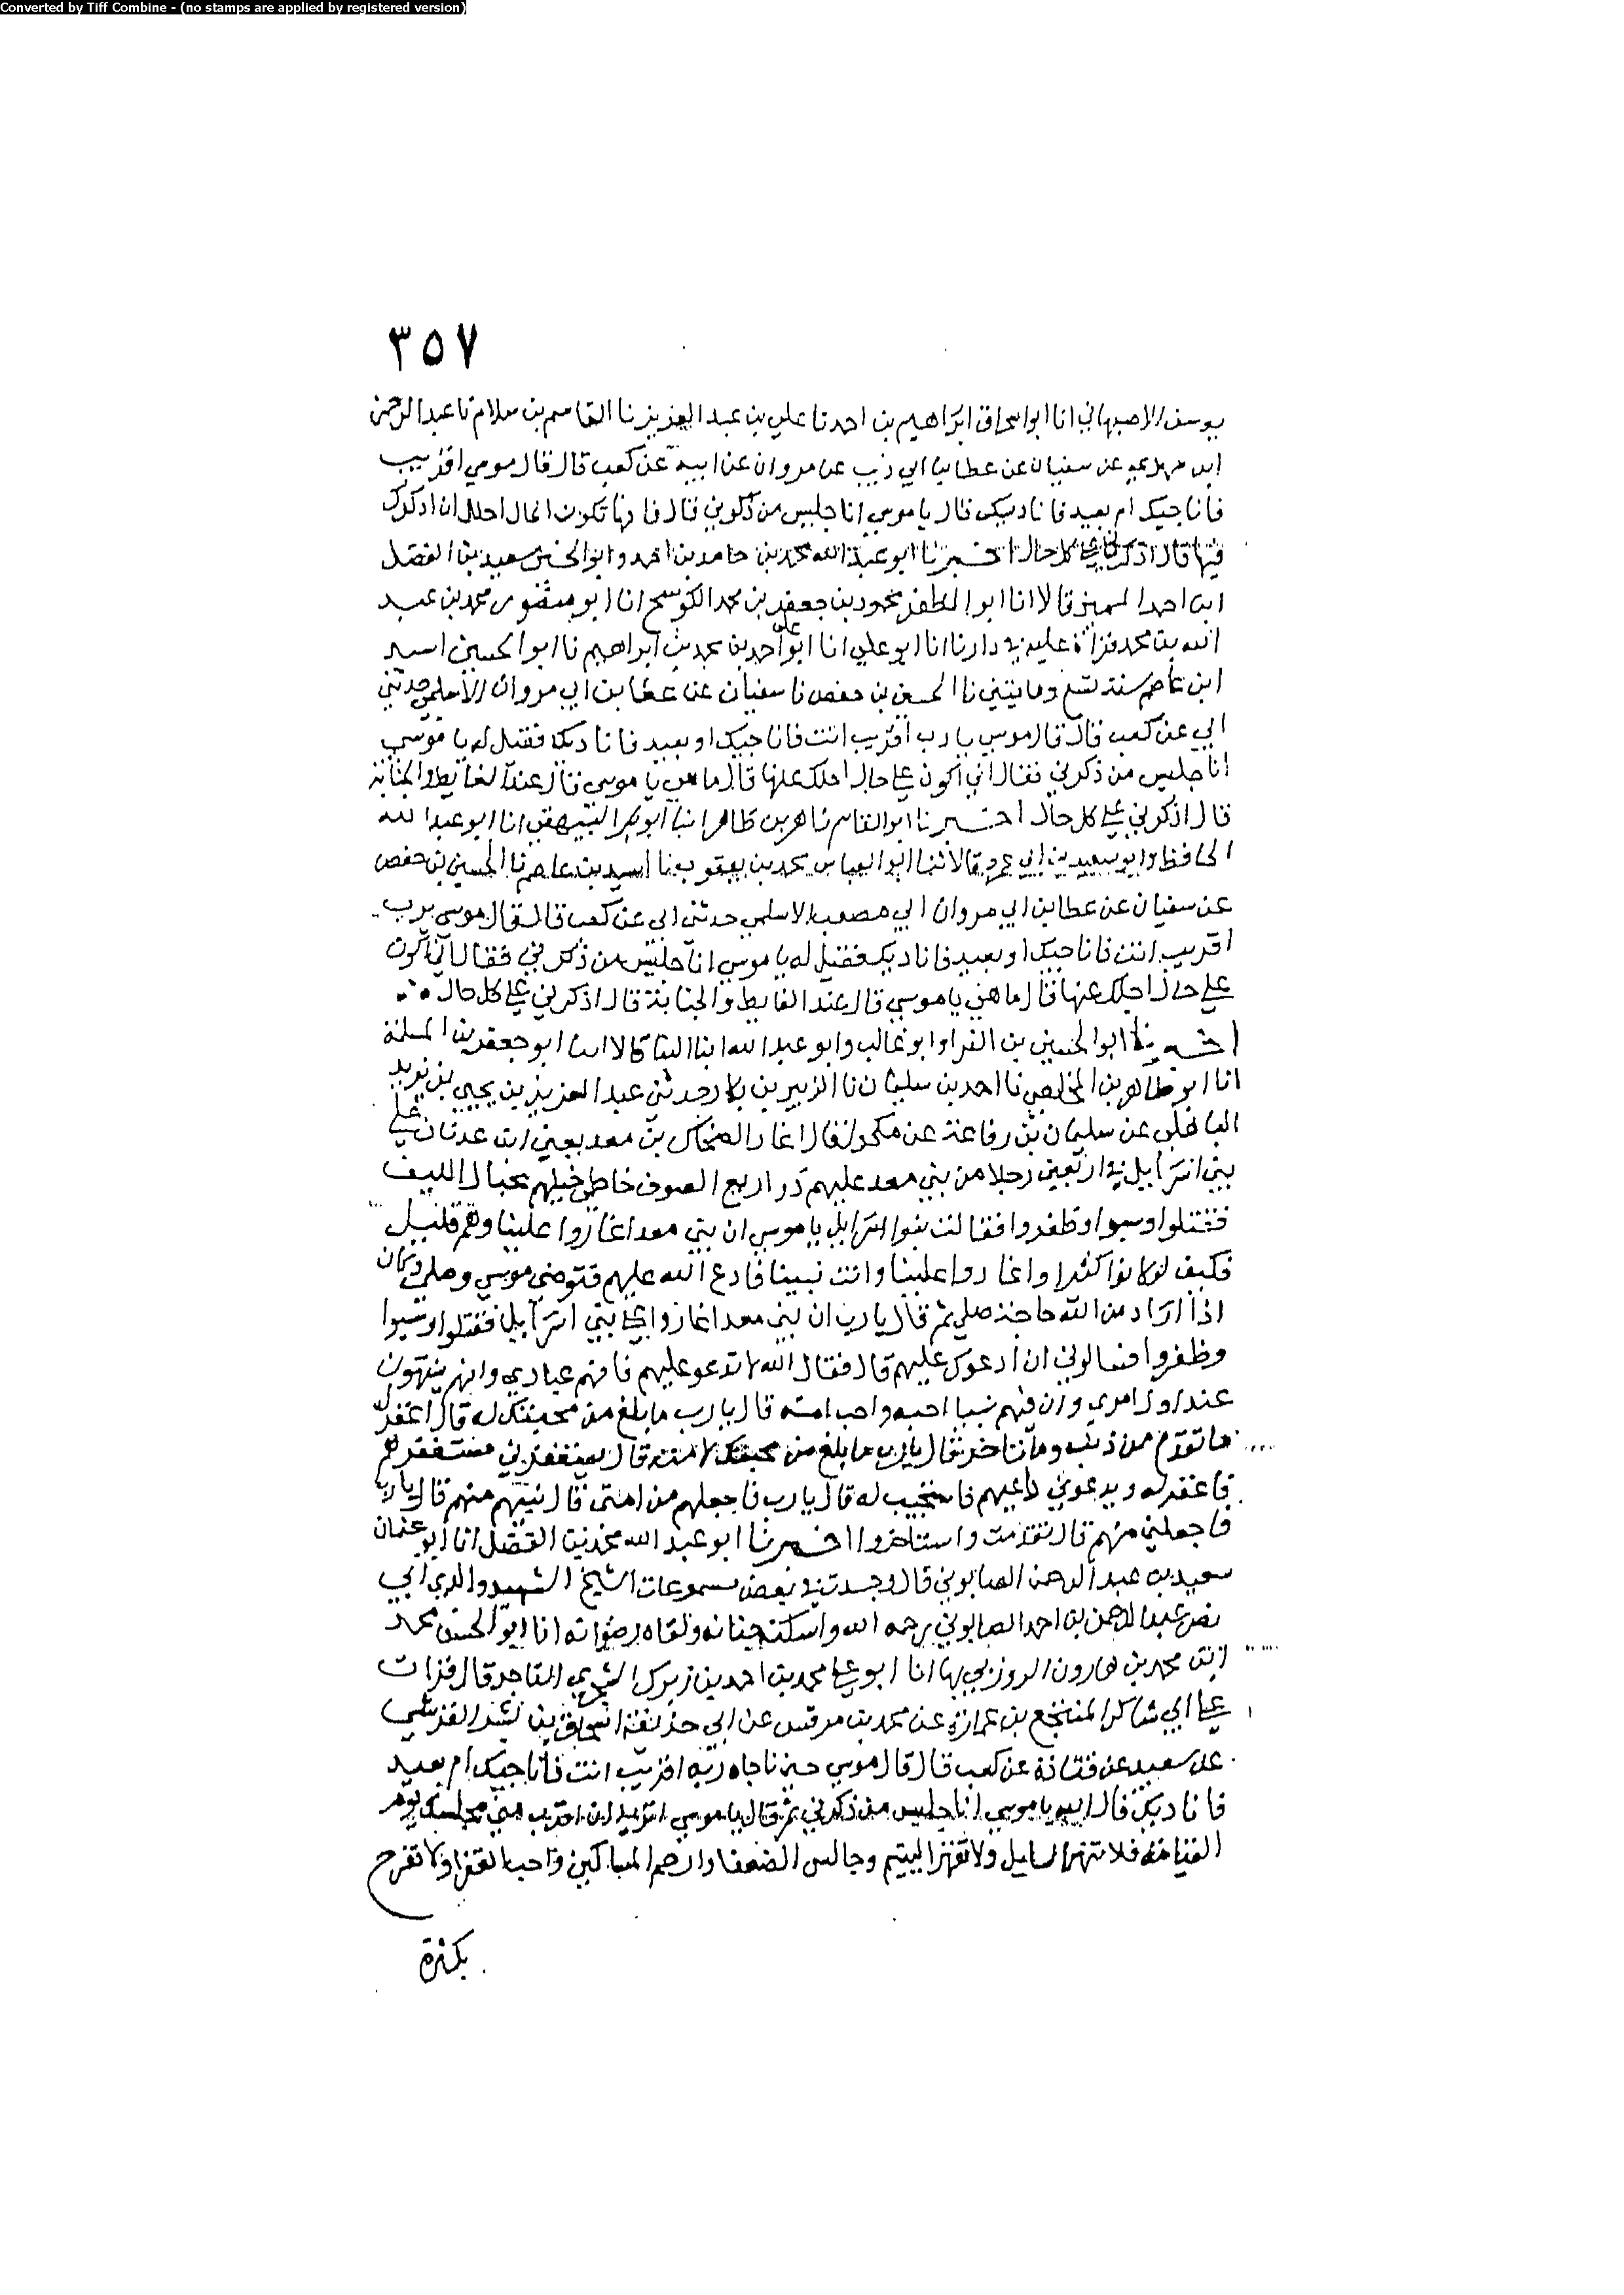 Converted by Tiff Combine - (no stamps are applied by registered version)
٣٥٧
يوسف الاصبهاني انا ابو اسحاق ابراهيم بن احمد نا علي بن عبد العزيز نا القاسم بن سلام نا عبد الرحمن
ابن مهدي عن سفيان عن عطا بن ابي مروان عن ابيه عن كعب قال قال موسى اقريب
فاناجيك ام بعيد فاناديك قال يا موسى انا جليس من ذكرني قال فانها تكون الحال اجلك ان اذكرك
فيها قال اذكرني على كل حال اخبرنا ابو عبد الله محمد بن حامد بن احمد وابو الحسن سعيد بن الفضل
ابن احمد المميز قالا انا ابو المظفر محمود بن جعفر بن محمد الكوسج انا ابو منصور محمد بن عبد
الله بن محمد قراة عليه في دارنا انا ابو علي انا ابو علي احمد بن محمد بن ابراهيم نا ابو الحسين اسيد
ابن عاصم سنة تسع ومايتين نا الحسين بن حفص نا سفيان عن عطا بن ابي مروان الاسلمي حدثني
ابي عن كعب قال قال موسى يا رب اقريب انت فاناجيك او بعيد فاناديك فقيل له يا موسى
انا جليس من ذكرني فقال اني اكون على حال اجلك عنها قال ما هي يا موسى قال عند الغايط والجنابة
قال اذكرني على كل حال اخبرنا ابو القاسم زاهر بن طاهر انبا ابو بكر البيهقي انا ابو عبد الله
الحافظ وابو سعيد بن ابي عمرو قالا ثنا ابو العباس محمد بن يعقوب نا اسيد بن عاصم نا الحسين بن حفص
عن سفيان عن عطا بن ابي مروان ابي مصعب الاسلمي حدثني ابي عن كعب قال قال موسى يرب
اقريب انت فاناجيك او بعيد فاناديك فقيل له يا موسى انا جليس من ذكرني فقال اني اكون
على حال اجلك عنها قال ما هي يا موسى قال عند الغايط والجنابة قال اذكرني على كل حال
اخبرنا ابو الحسين بن الفرا وابو غالب وابو عبد الله ابنا البنا قالا انبا ابو جعفر بن المسلمة
انا ابو طاهر بن المخلص نا احمد بن سليمان نا الزبير بن بكار حدثني عبد العزيز بن يحيى بن يزيد
الباهلي عن سليمان بن رفاعة عن مكحول قال اغار الضحاك بن معد يعني ابن عدنان على
بني اسرايل في اربعين رجلا من بني معد عليهم دراريع الصوف خاطمي خيلهم بحبال الليف
فقتلوا وسبوا وظفروا فقالت بنوا اسرايل يا موسى ان بني معد اغاروا علينا وهم قليل
فكيف لو كانوا كثيرا واغاروا علينا وانت نبينا فادع الله عليهم فتوضى موسى وصلى وكان
اذا اراد من الله حاجة صلى ثم قال يا رب ان بني معد اغاروا على بني اسرايل فقتلوا وسبوا
وظفروا فسالوني ان ادعوك عليهم قال فقال الله لا تدعو عليهم فانهم عبادي وانهم ينتهون
عند اول امري وان فيهم نبيا احبه واحب امته قال يا رب ما بلغ من محبتك له قال اغفر له
ما تقدم من ذنبه وما تاخر قال يا رب ما بلغ من محبتك لامته قال يستغفرني مستغفرهم
فاغفر له ويدعوني داعيهم فاستجيب له قال يا رب فاجعلهم من امتي قال نبيهم منهم قال يا رب
فاجعلني منهم قال تقدمت واستاخروا اخبرنا ابو عبد الله محمد بن الفضل انا ابو عثمان
سعيد بن عبد الرحمن الصابوني قال وجدت في بعض مسموعات الشيخ الشهيد والدي ابي
نصر عبد الرحمن بن احمد الصابوني رحمه الله واسكنه جنانه ولقاه رضوانه انا ابو الحسن محمد
ابن محمد بن هارون الروزني بها انا ابو علي محمد بن احمد بن زيرك التاجر قال قرات
على ابي شاكر المنتجع بن عمارة عن محمد بن مرقس عن ابي حذيفة اسحاق بن بشر القرشي
عن سعيد عن قتادة عن كعب قال قال موسى حين ناجاه ربه اقريب انت فاناجيك ام بعيد
فاناديك قال اليه يا موسى انا جليس من ذكرني ثم قال يا موسى اتريد ان اقرب من مجلسك يوم
القيامة فلا تنهر السايل ولا تقهر اليتيم وجالس الضعفا وارحم المساكين واحب الفقرا ولا تفرح
بكثرة